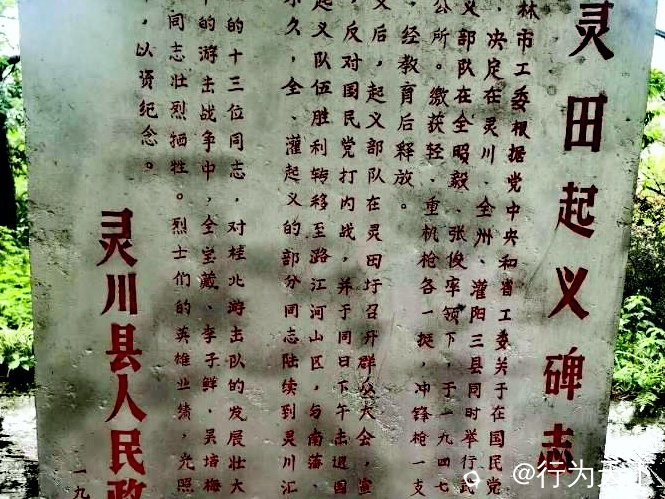 灵田起义碑志
林市工委根据党中央和省工委关于在国民党
，决定在灵川、全州、灌阳三县同时举行武
义部队在全昭毅、张俊率领下，于一九四七
公所。缴获轻、重机枪各一挺，冲锋枪一支
，经教育后释放。
义后，起义部队在灵田圩召开群众大会，宣
，反对国民党打内战，并于同日下午击退国
起义队伍胜利转移至潞江河山区，与南藩、
永久，全、灌起义的部分同志陆续到灵川汇
的十三位同志，对桂北游击队的发展壮大
的游击战争中，全宝戴、李子鲜、吴培梅
同志壮烈牺牲。烈士们的英雄业绩，光照
，以资纪念。
灵川县人民政
一九
@行为